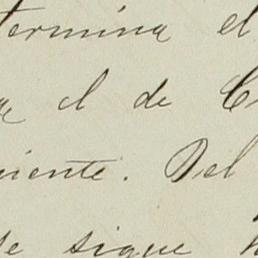 termina el
el de
iente. Del
se sigue